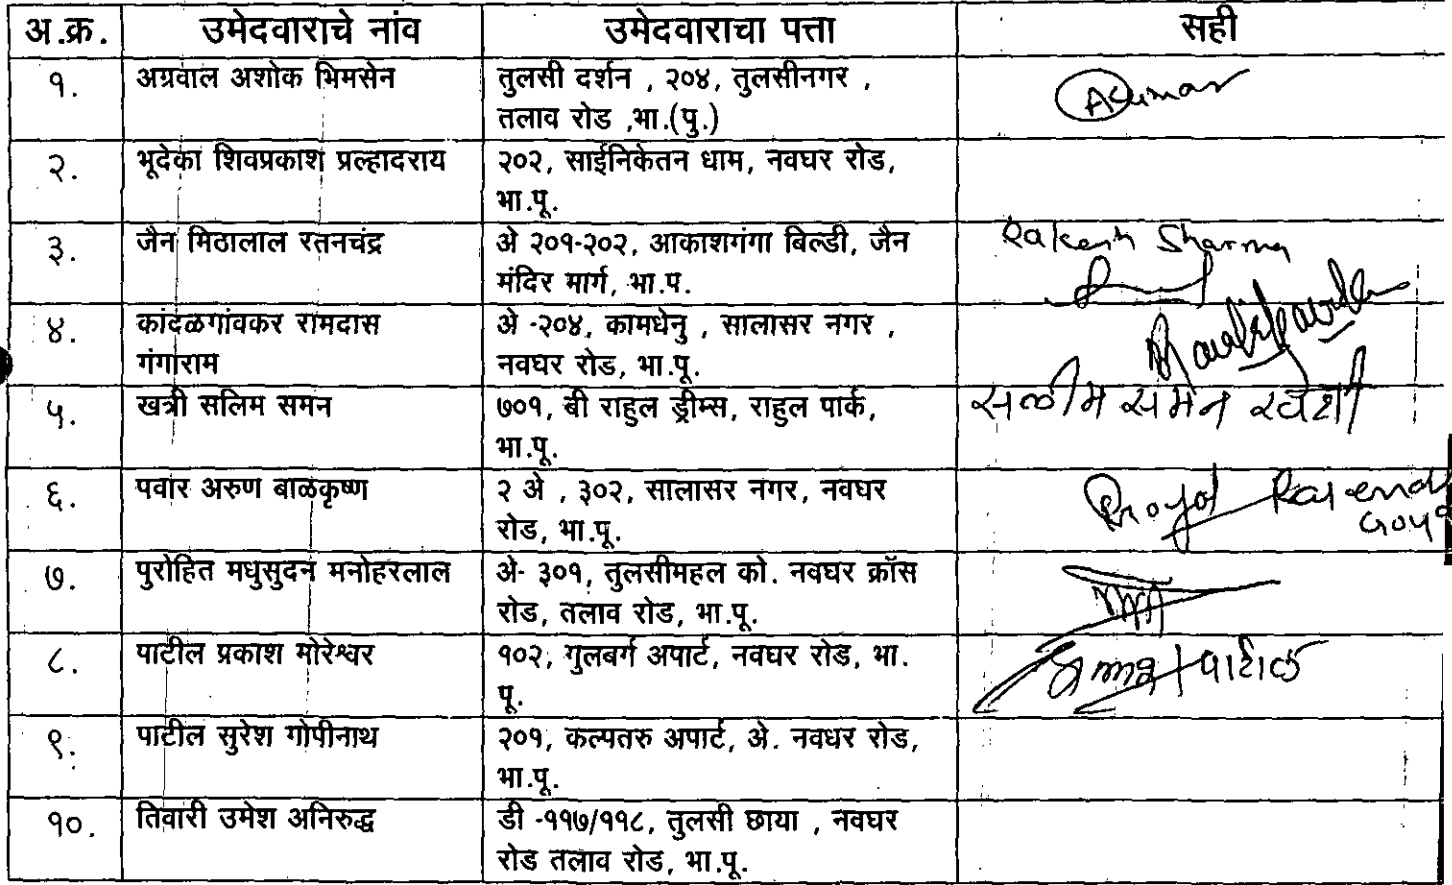 अ.क्र. उमेदवाराचे नांव उमेदवाराचा पत्ता सही
१. अग्रवाल अशोक भिमसेन तुलसी दर्शन , २०४, तुलसीनगर ,
तलाव रोड ,भा.(पु.)
Akumar
२. भूदेका शिवप्रकाश प्रल्हादराय २०२, साईनिकेतन धाम, नवघर रोड,
भा.पू.
३. जैन मिठालाल रतनचंद्र अे २०१-२०२, आकाशगंगा बिल्डी, जैन
मंदिर मार्ग, भा.प.
Rakesh Sharma
४. कांदळगांवकर रामदास अे -२०४, कामधेनु , सालासर नगर ,
गंगाराम नवघर रोड, भा.पू.
५. खत्री सलिम समन ७०१, बी राहुल ड्रीम्स, राहुल पार्क,
भा.पू.
सलीम समन खत्री
६. पवार अरुण बाळकृष्ण २ अे , ३०२, सालासर नगर, नवघर
रोड, भा.पू.
७. पुरोहित मधुसुदन मनोहरलाल अे- ३०१, तुलसीमहल को. नवघर क्रॉस
रोड, तलाव रोड, भा.पू.
८. पाटील प्रकाश मोरेश्वर १०२, गुलबर्ग अपार्ट, नवघर रोड, भा.
पू.
पाटील
९. पाटील सुरेश गोपीनाथ २०१, कल्पतरु अपार्ट, अे. नवधर रोड,
भा.पू.
१०. तिवारी उमेश अनिरुद्ध डी -११७/११८, तुलसी छाया , नवघर
रोड तलाव रोड, भा.पू.